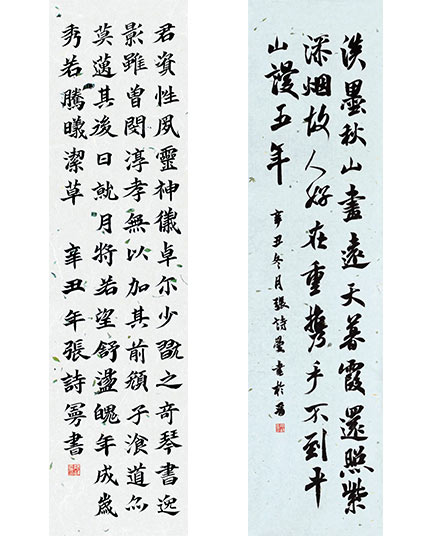 淡墨秋山畫遠天暮霞還照紫
添烟故人好在重攜手不到平
山謾五年
辛丑冬月張詩曼書於
君資性夙靈神儀卓尔少翫之奇琴書逸
影雖曾閔淳孝無以加其前顏子湌道亦
莫邁其後日就月將若望舒盪魄年成歲
秀若騰曦潔草 辛丑年張詩曼書